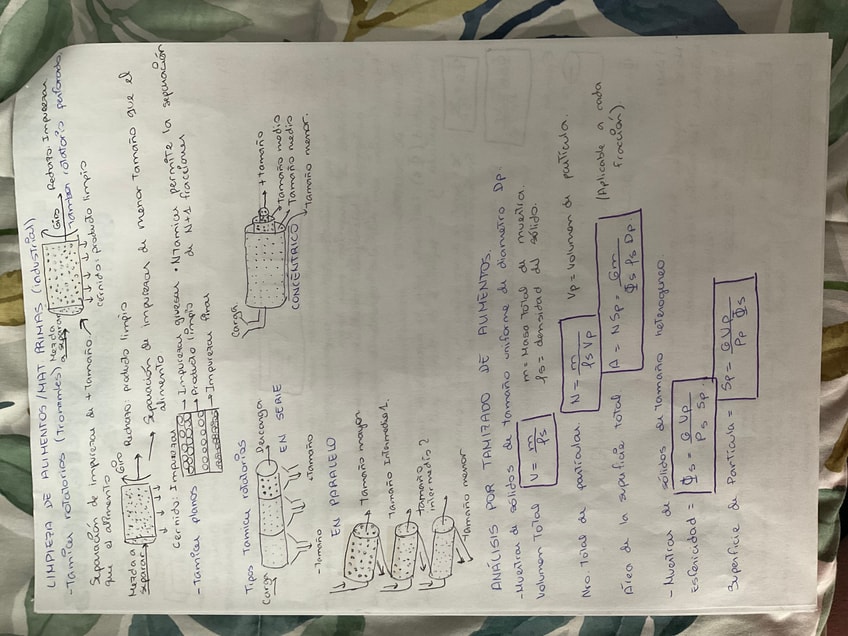 LIMPIEZA DE ALIMENTOS/MAT PRIMAS (industrial)
- Tamices rotatorios (Trommles)
Mezcla a separar
Giro
Rechazo: Impurezas
Tambor rotatorio perforado
cernido: producto limpio
Separación de impurezas de + Tamaño
que el alimento
Mezcla a
separar
Giro
Rechazo: producto limpio
Separación de impurezas de menor Tamaño que el
alimento
Cernido: Impurezas
- Tamices planos
Impurezas gruesas
Producto limpio
Impurezas finas
• N Tamices permite la separación
de N+1 fracciones
Tipos Tamices rotatorios
Carga
Descarga
EN SERIE
- Tamaño
+Tamaño
Carga
+ Tamaño
Tamaño medio
Tamaño medio
Tamaño menor.
CONCÉNTRICO
EN PARALELO
Tamaño mayor
Tamaño Intermedio 1.
Tamaño
intermedio 2
Tamaño menor
ANÁLISIS POR TAMIZADO DE ALIMENTOS.
- Muestras de sólidos de tamaño uniforme de diametro Dp.
Volumen Total V = m/ρs
m = Masa Total de muestra.
ρs = densidad del sólido.
Nro. Total de partículas N = m/ρs Vp
Vp = Volumen de partícula.
Área de la superficie Total A = N Sp = 6m/Φs ρs Dp
(Aplicable a cada
fracción)
- Muestras de sólidos de tamaño heterogeneo.
Esfericidad = Φs = 6 Vp/Ps Sp.
Superficie de Partícula = Sp = 6 Vp/Pp Φs